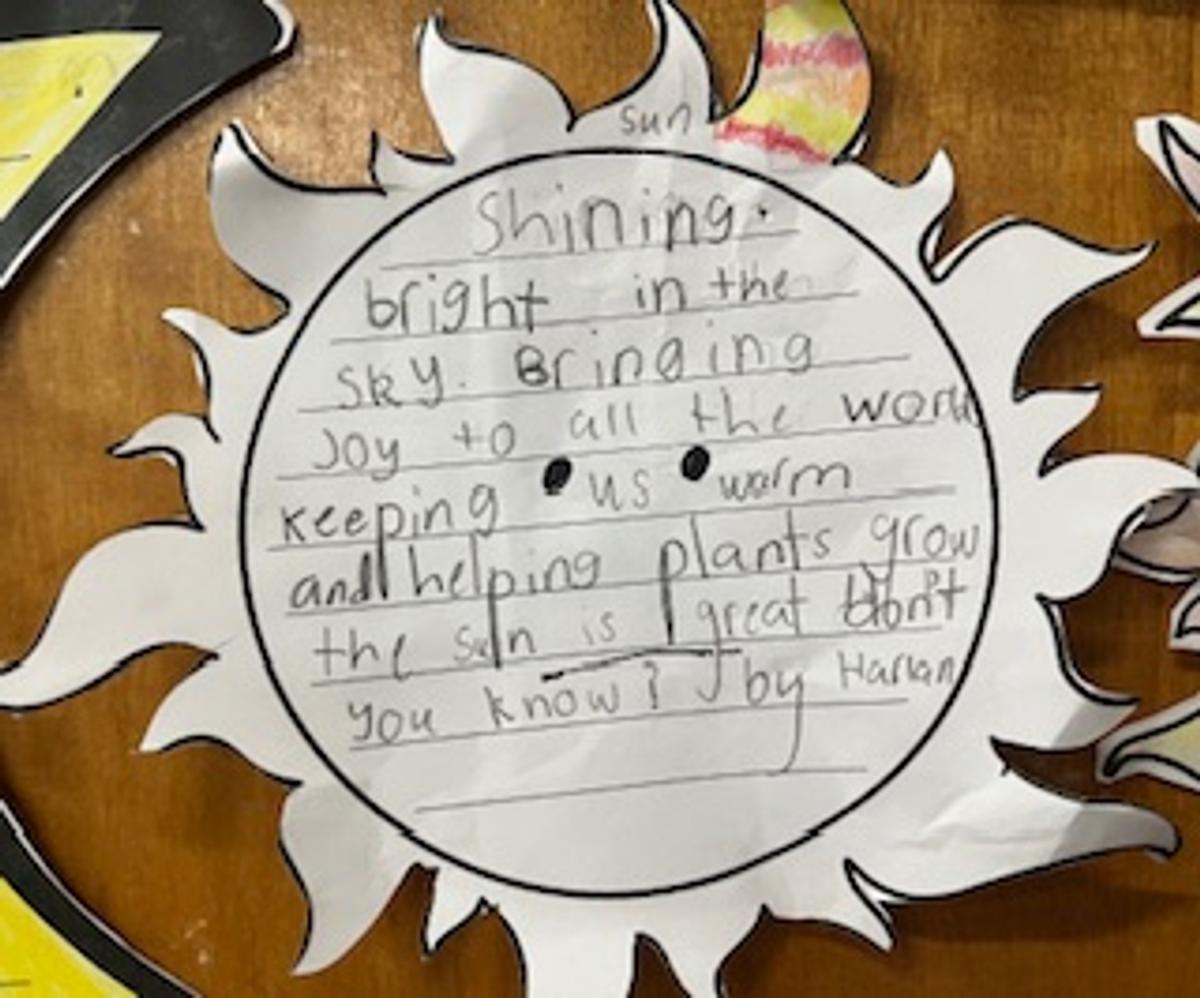 sun
Shining.
bright in the
sky. Bringing
Joy to all the world
keeping us warm
and helping plants grow
the sun is great don't
you know? by Harlan